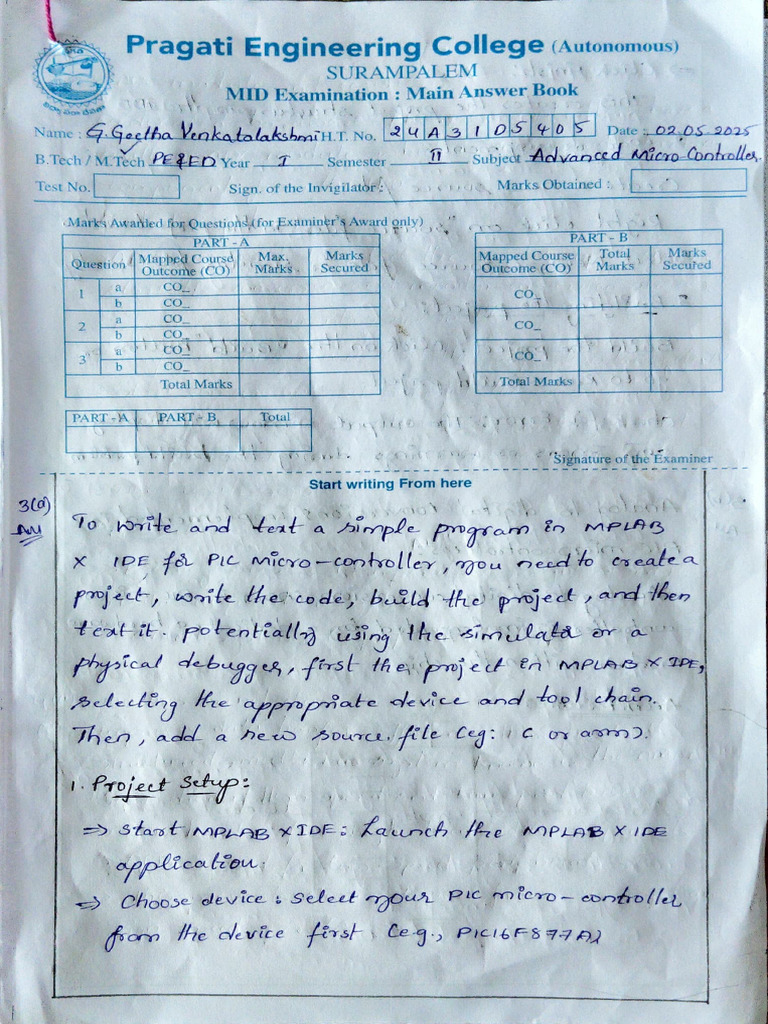 Pragati Engineering College (Autonomous)
SURAMPALEM
MID Examination : Main Answer Book
Name : G. Geetha Venkatalakshmi H.T. No. 24A31D5405 Date : 02.05.2025
B.Tech / M.Tech PE&ED Year I Semester II Subject Advanced Micro Controller.
Test No. Sign. of the Invigilator : Marks Obtained :
Marks Awarded for Questions (for Examiner's Award only)
PART - A
Question Mapped Course Outcome (CO) Max. Marks Marks Secured
1 a CO_
b CO_
2 a CO_
b CO_
3 a CO_
b CO_
Total Marks
PART - B
Mapped Course Outcome (CO) Total Marks Marks Secured
CO_
CO_
CO_
Total Marks
PART - A PART - B Total
Signature of the Examiner
Start writing From here
3(a)
To write and test a simple program in MPLAB
X IDE for PIC Micro-controller, you need to create a
project, write the code, build the project, and then
test it. potentially using the simulator or a
physical debugger, first the project in MPLAB X IDE,
selecting the appropriate device and tool chain.
Then, add a new source file (eg: C or asm).
1. Project Setup:
⇒ Start MPLAB X IDE: Launch the MPLAB X IDE
application.
⇒ Choose device : select your PIC micro-controller
from the device first (eg., PIC16F877A)